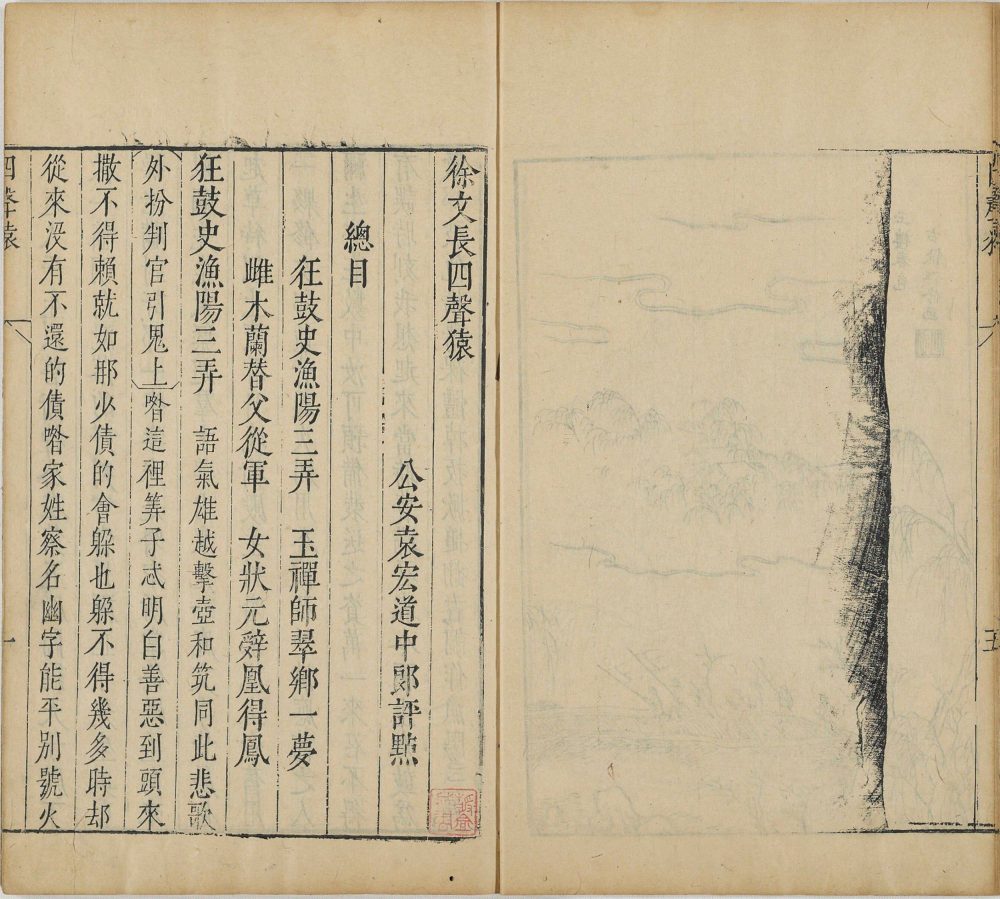 徐文長四聲猿
公安袁宏道中郎評點
總目
狂鼓史漁陽三弄　玉禪師翠鄉一夢
雌木蘭替父從軍　女狀元辭凰得鳳
狂鼓史漁陽三弄　語氣雄越擊壺和筑同此悲歌
外扮判官引鬼上　喒這裡筭子忒明白善惡到頭來
撒不得賴就如那少債的會躲也躲不得幾多時却
從來沒有不還的債喒家姓察名幽字能平別號火
四聲猿
一
五